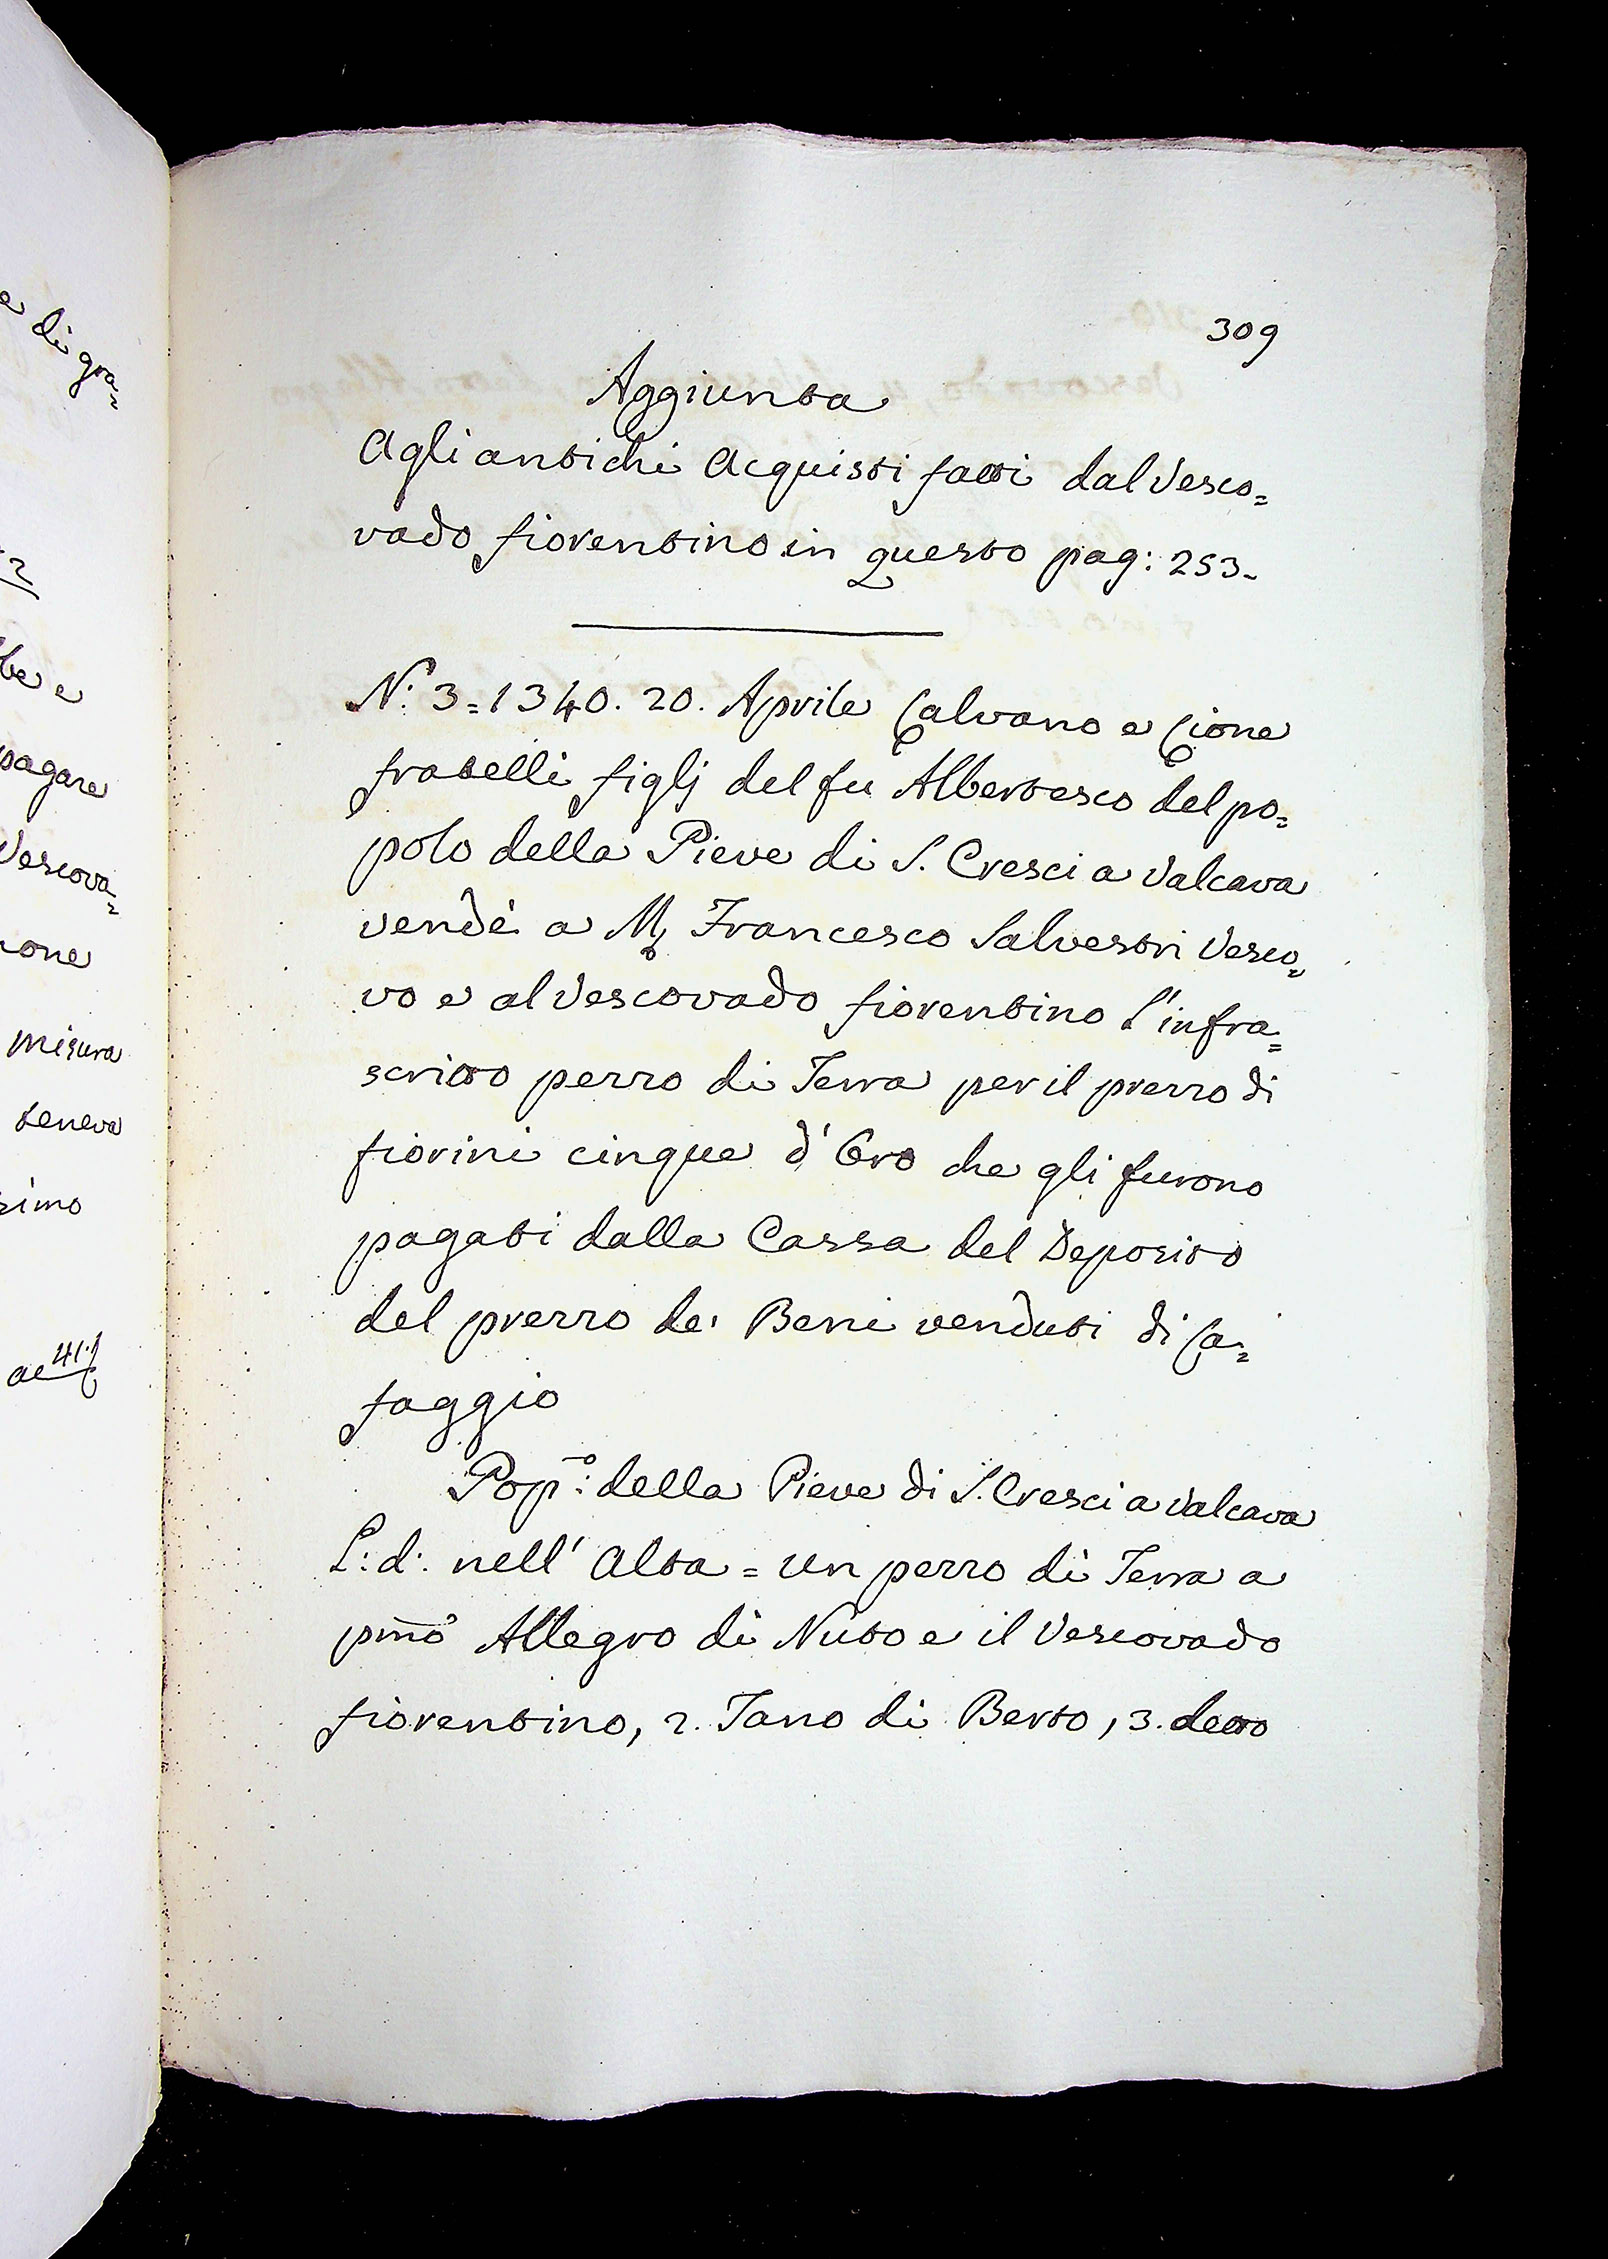 e di gra=
2
be e
pagare
Vescova=
none
misura
teneva
simo
309
Aggiunta
Agli antichi Acquisti fatti dal Vesco=
vado fiorentino in questo pag: 253.
N.° 3=1340. 20. Aprile Calvano e Cione
fratelli figlj del fu Albertesco del po=
polo della Pieve di S. Cresci a Valcava
vendè a M. Francesco Salvestri Vesco=
vo e al Vescovado fiorentino l'infra=
scritto pezzo di Terra per il prezzo di
fiorini cinque d'Oro che gli furono
pagati dalla Cassa del Deposito
del prezzo de' Beni venduti di Ca=
faggio
Pop.°: della Pieve di S. Cresci a Valcava
L: d: nell' Alta = Un pezzo di Terra a
pmo Allegro di Nuto e il Vescovado
fiorentino, 2. Tano di Berto, 3. detto